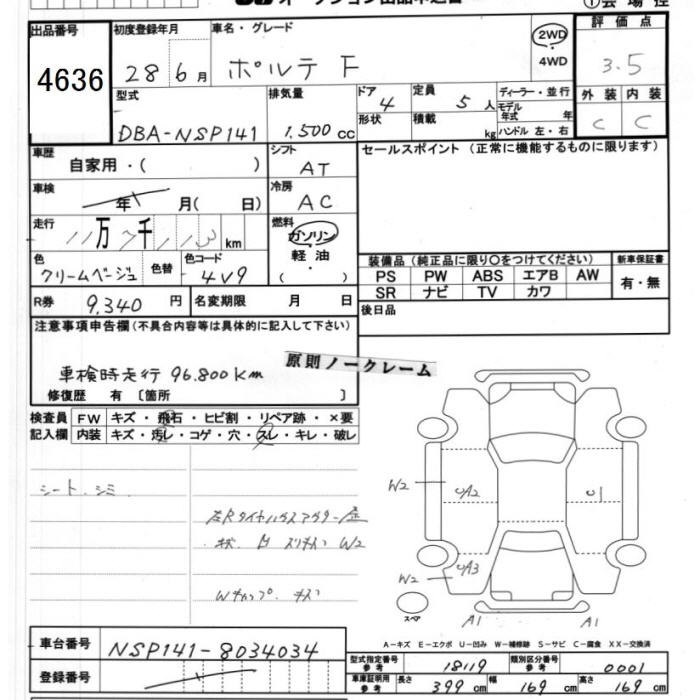 ①会場控
出品番号
4636
初度登録年月
28 6月
車名・グレード
ポルテ F
2WD
4WD
評価点
3.5
型式
DBA-NSP141
排気量
1.500 cc
ドア 4
形状
定員 5人
積載 kg
ディーラー・並行
モデル年式 年
ハンドル 左・右
外装 内装
C C
車歴
自家用・( )
シフト
AT
セールスポイント (正常に機能するものに限ります)
車検
年 月( 日)
冷房
AC
走行
11万7千 km
燃料
ガソリン
軽油
・
( )
色
クリームベージュ
色替
色コード
4V9
装備品 (純正品に限り〇をつけてください)
新車保証書
PS PW ABS エアB AW
有・無
SR ナビ TV カワ
R券 9,340 円
名変期限 月 日
後日品
注意事項申告欄 (不具合内容等は具体的に記入して下さい)
車検時走行 96.800Km
原則ノークレーム
修復歴 有 〔箇所 〕
検査員 FW キズ・飛石・ヒビ割・リペア跡・×要
記入欄 内装 キズ・汚レ・コゲ・穴・スレ・キレ・破レ
シート.シミ
W2
A2
W2
A3
W2
Wキャップ.キズ
スペア
A1
A1
A-キズ E-エクボ U-凹み W-補修跡 S-サビ C-腐食 XX-交換済
車台番号 NSP141-8034034
登録番号
型式指定番号 参考 18119
類別区分番号 参考 0001
車庫証明用 参考 長さ 399 cm 幅 169 cm 高さ 169 cm